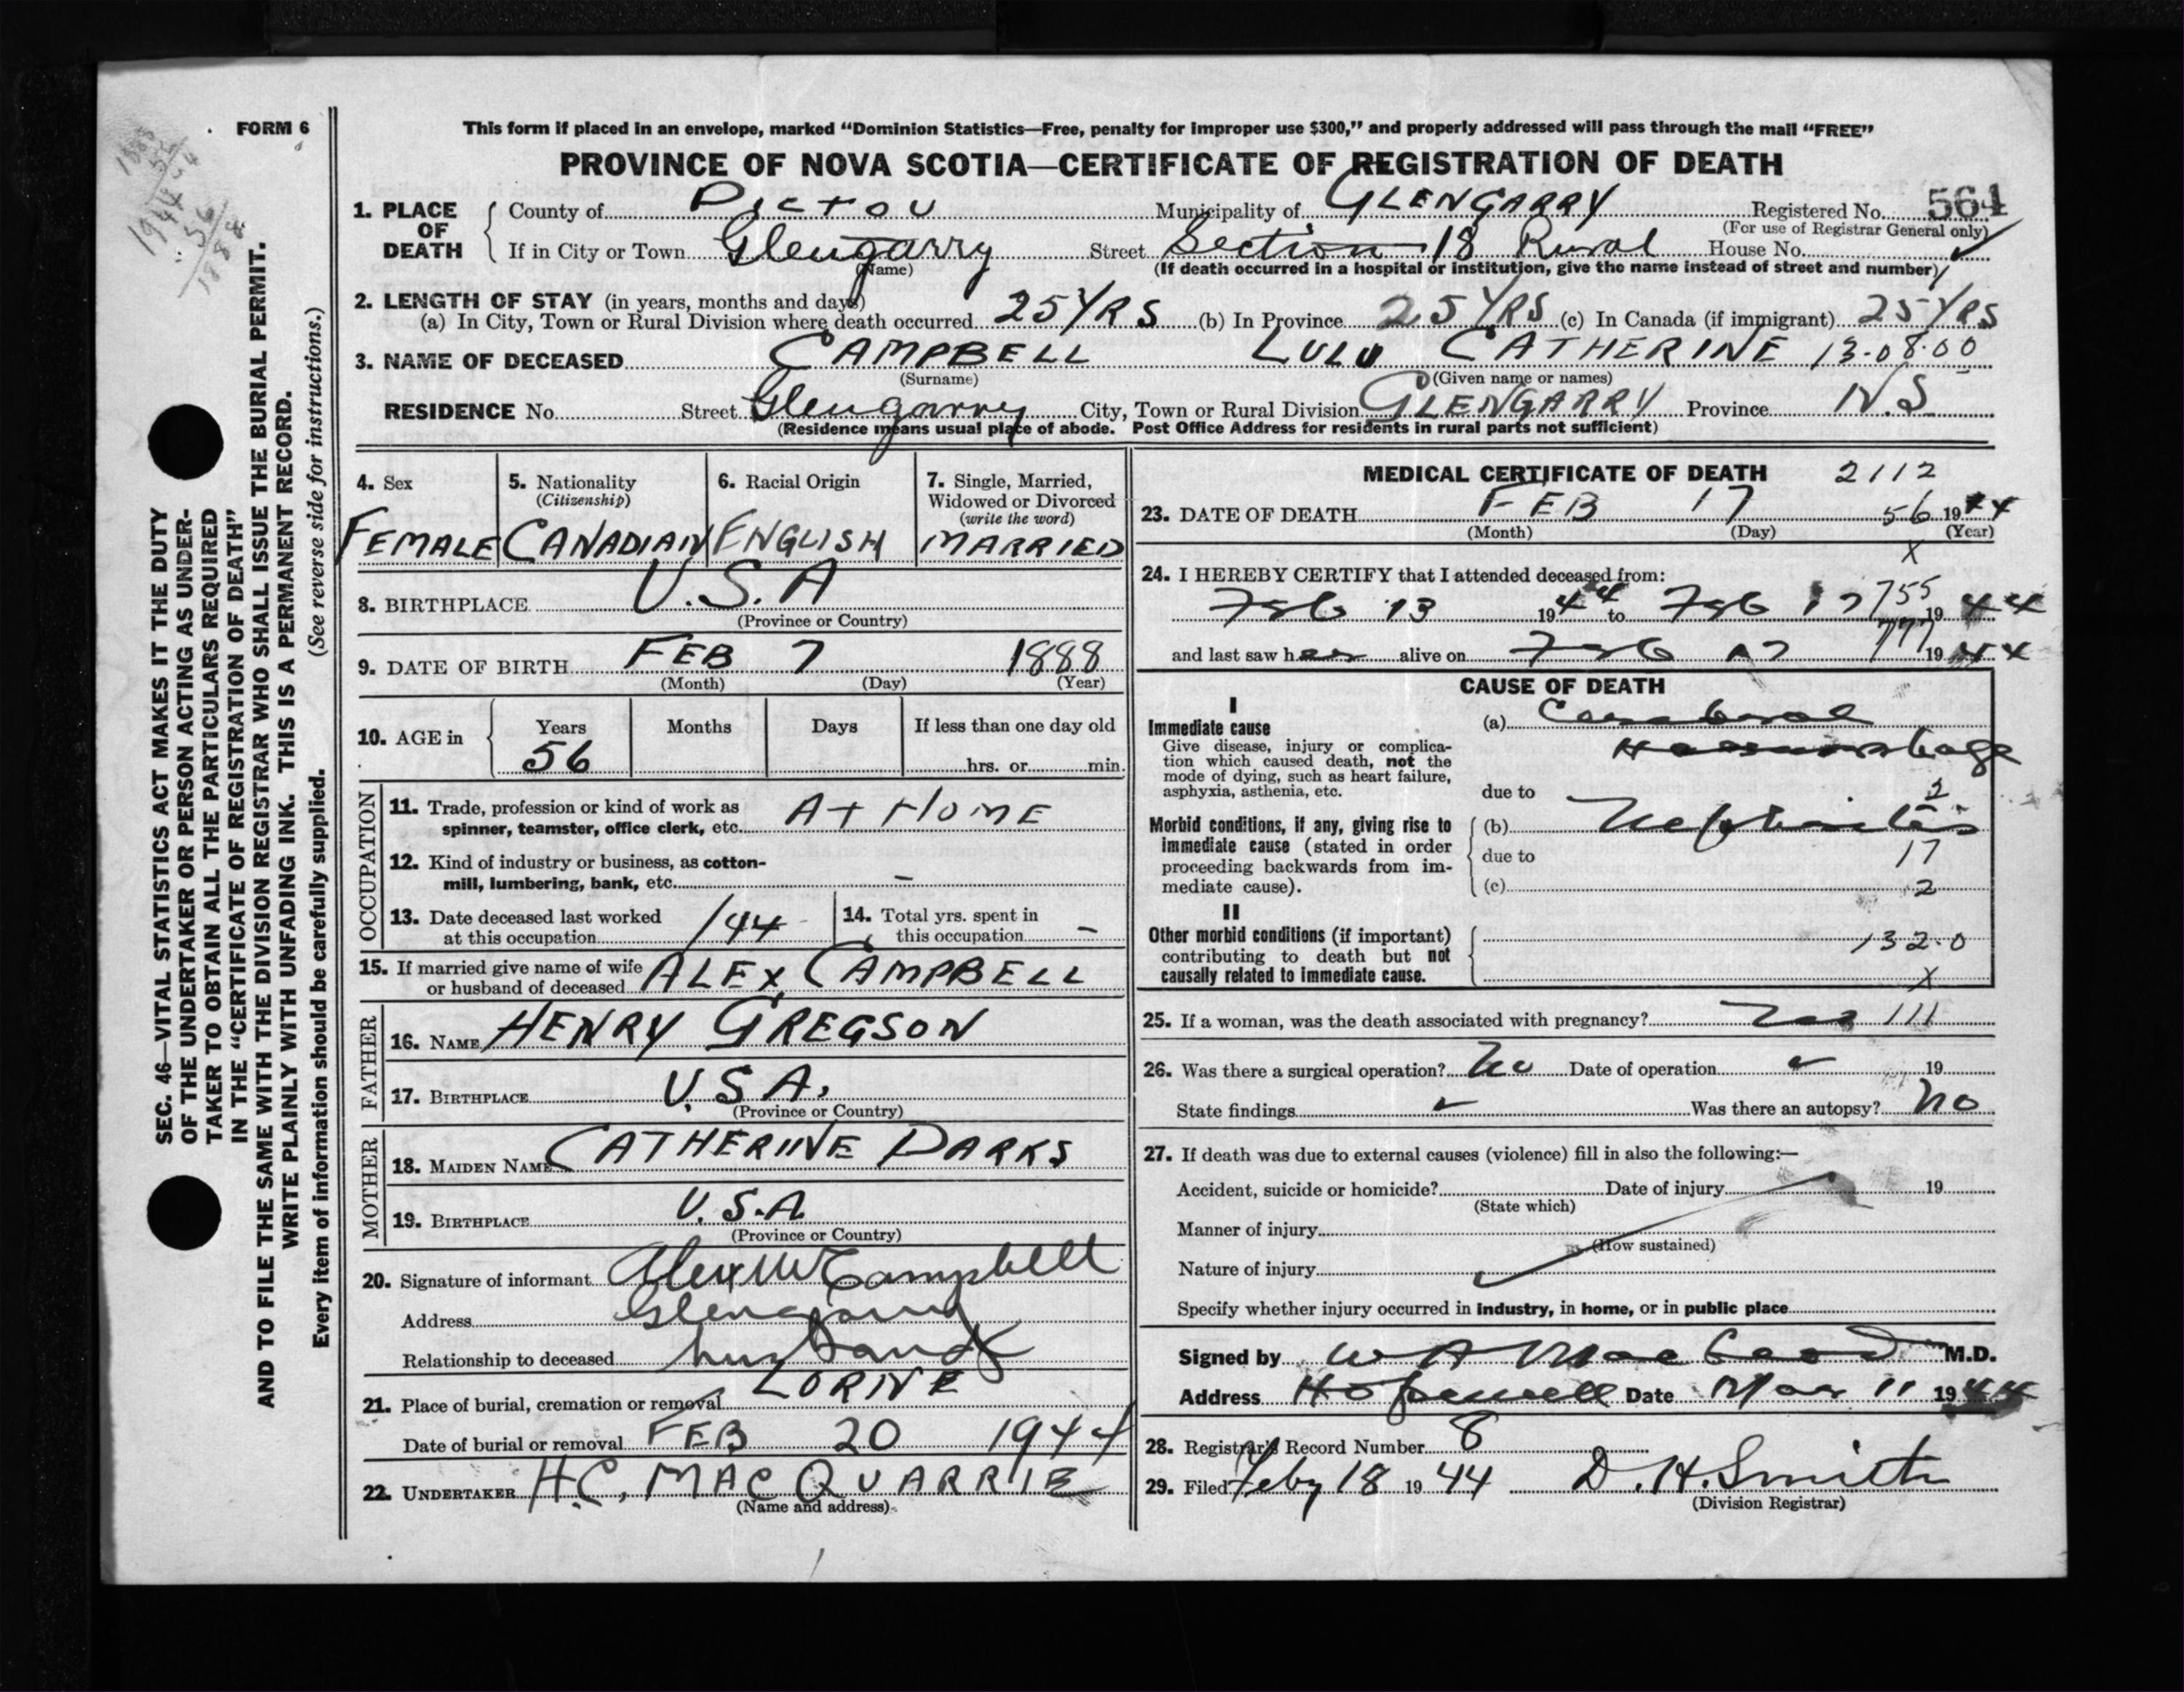 FORM 6
This form if placed in an envelope, marked “Dominion Statistics—Free, penalty for improper use $300,” and properly addressed will pass through the mail “FREE”
PROVINCE OF NOVA SCOTIA—CERTIFICATE OF REGISTRATION OF DEATH
1. PLACE OF DEATH
County of PICTOU Municipality of GLENGARRY Registered No. 564
(For use of Registrar General only)
If in City or Town Glengarry Street Section 18 Rural House No.
(Name) (If death occurred in a hospital or institution, give the name instead of street and number)
2. LENGTH OF STAY (in years, months and days)
(a) In City, Town or Rural Division where death occurred 25 YRS (b) In Province 25 YRS (c) In Canada (if immigrant) 25 YRS
3. NAME OF DECEASED CAMPBELL LULU CATHERINE 13-08-00
(Surname) (Given name or names)
RESIDENCE No. Street Glengarry City, Town or Rural Division GLENGARRY Province N.S
(Residence means usual place of abode. Post Office Address for residents in rural parts not sufficient)
4. Sex
FEMALE
5. Nationality
(Citizenship)
CANADIAN
6. Racial Origin
ENGLISH
7. Single, Married,
Widowed or Divorced
(write the word)
MARRIED
8. BIRTHPLACE U.S.A
(Province or Country)
9. DATE OF BIRTH FEB 7 1888
(Month) (Day) (Year)
10. AGE in
Years Months Days If less than one day old
56 hrs. or min.
OCCUPATION
11. Trade, profession or kind of work as
spinner, teamster, office clerk, etc. AT HOME
12. Kind of industry or business, as cotton-
mill, lumbering, bank, etc. –
13. Date deceased last worked
at this occupation 1/44
14. Total yrs. spent in
this occupation –
15. If married give name of wife
or husband of deceased ALEX CAMPBELL
FATHER
16. NAME HENRY GREGSON
17. BIRTHPLACE U.S.A.
(Province or Country)
MOTHER
18. MAIDEN NAME CATHERINE PARKS
19. BIRTHPLACE U.S.A
(Province or Country)
20. Signature of informant Alex W Campbell
Address Glengarry
Relationship to deceased husband
21. Place of burial, cremation or removal LORNE
Date of burial or removal FEB 20 1944
22. UNDERTAKER H.C. MACQUARRIE
(Name and address)
MEDICAL CERTIFICATE OF DEATH 2112
23. DATE OF DEATH FEB 17 56 1944
(Month) (Day) (Year)
X
24. I HEREBY CERTIFY that I attended deceased from:
Feb 13 1944 to Feb 17 755 1944
and last saw her alive on Feb 17 777 1944
CAUSE OF DEATH
I
Immediate cause
Give disease, injury or complica-
tion which caused death, not the
mode of dying, such as heart failure,
asphyxia, asthenia, etc.
(a) Cerebral
Haemorrhage
due to 2
Morbid conditions, if any, giving rise to
immediate cause (stated in order
proceeding backwards from im-
mediate cause).
(b) Nephritis
due to 17
(c) 2
II
Other morbid conditions (if important)
contributing to death but not
causally related to immediate cause.
132.0
X
25. If a woman, was the death associated with pregnancy? 111
26. Was there a surgical operation? No Date of operation 19
State findings Was there an autopsy? No
27. If death was due to external causes (violence) fill in also the following:—
Accident, suicide or homicide? Date of injury 19
(State which)
Manner of injury
(How sustained)
Nature of injury
Specify whether injury occurred in industry, in home, or in public place
Signed by W A MacLeod M.D.
Address Hopewell Date Mar 11 1944
28. Registrar's Record Number 8
29. Filed Feby 18 1944 D.H. Smith
(Division Registrar)
SEC. 46—VITAL STATISTICS ACT MAKES IT THE DUTY
OF THE UNDERTAKER OR PERSON ACTING AS UNDER-
TAKER TO OBTAIN ALL THE PARTICULARS REQUIRED
IN THE “CERTIFICATE OF REGISTRATION OF DEATH”
AND TO FILE THE SAME WITH THE DIVISION REGISTRAR WHO SHALL ISSUE THE BURIAL PERMIT.
WRITE PLAINLY WITH UNFADING INK. THIS IS A PERMANENT RECORD.
(See reverse side for instructions.)
Every item of information should be carefully supplied.
1944
56
1888